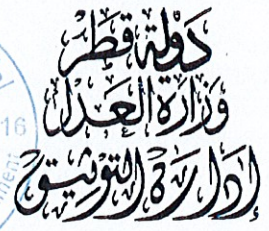 دَوْلَة قَطَر
وَزَارَة العَدْل
إدَارَة التَوثِيق
16